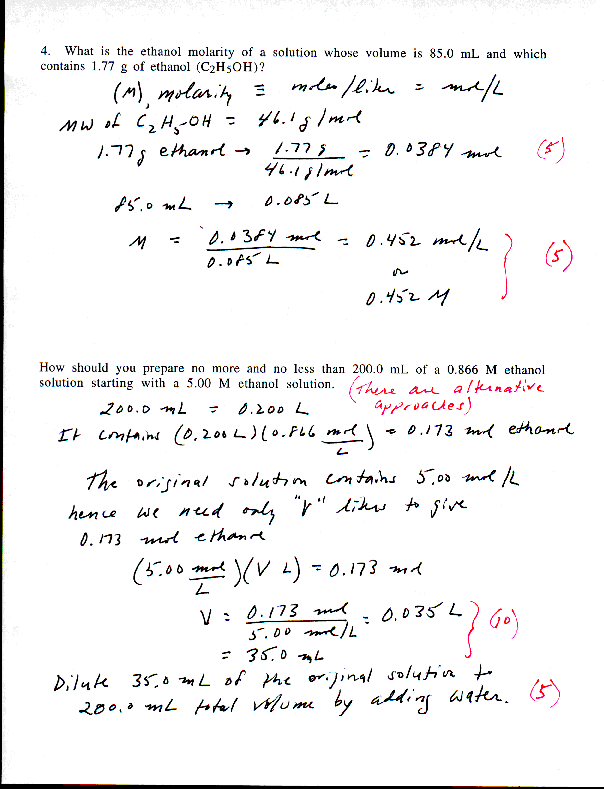 4. What is the ethanol molarity of a solution whose volume is 85.0 mL and which
contains 1.77 g of ethanol (C₂H₅OH)?
(M), molarity ≡ moles/liter = mol/L
MW of C₂H₅-OH = 46.1 g/mol
1.77g ethanol → 1.77 g / 46.1 g/mol = 0.0384 mol (5)
85.0 mL → 0.085 L
M = 0.0384 mol / 0.085 L = 0.452 mol/L
or
0.452 M (5)
How should you prepare no more and no less than 200.0 mL of a 0.866 M ethanol
solution starting with a 5.00 M ethanol solution. (There are alternative
approaches)
200.0 mL = 0.200 L
It contains (0.200 L)(0.866 mol/L) = 0.173 mol ethanol
The original solution contains 5.00 mol/L
hence we need only "V" liters to give
0.173 mol ethanol
(5.00 mol/L)(V L) = 0.173 mol
V = 0.173 mol / 5.00 mol/L = 0.035 L (10)
= 35.0 mL
Dilute 35.0 mL of the original solution to
200.0 mL total volume by adding water. (5)